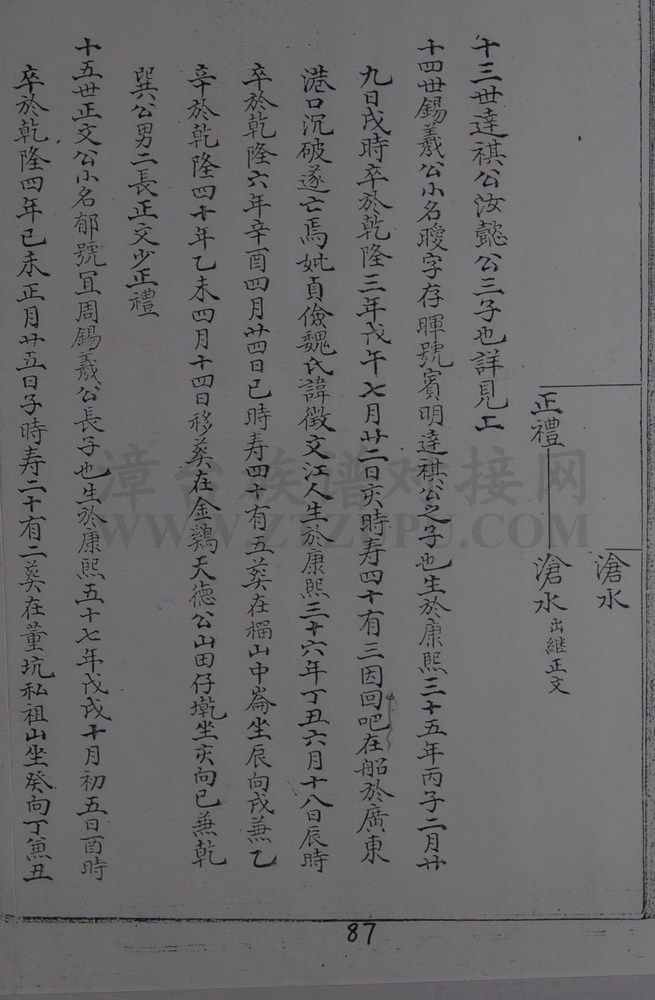 滄水
正禮 滄水 出継正文
十三世達祺公汝懿公三子也詳見上
十四世錫羲公小名曖字存暉號賓明達祺公之子也生於康熙三十五年丙子二月廿
九日戌時卒於乾隆三年戊午七月廿二日亥時寿四十有三因回吧在船於廣東
港口沉破遂亡焉妣貞儉魏氏諱徵文江人生於康熙三十六年丁丑六月十八日辰時
卒於乾隆六年辛酉四月廿四日巳時寿四十有五葬在榴山中崙坐辰向戌兼乙
辛於乾隆四十年乙未四月十四日移葬在金鷄天德公山田仔墘坐亥向巳兼乾
巽公男二長正文少正禮
十五世正文公小名郁號宜周錫羲公長子也生於康熙五十七年戊戌十月初五日酉時
卒於乾隆四年己未正月廿五日子時寿二十有二葬在董坑私祖山坐癸向丁兼丑
漳台族谱对接网
WWW.ZTZUPU.COM
87